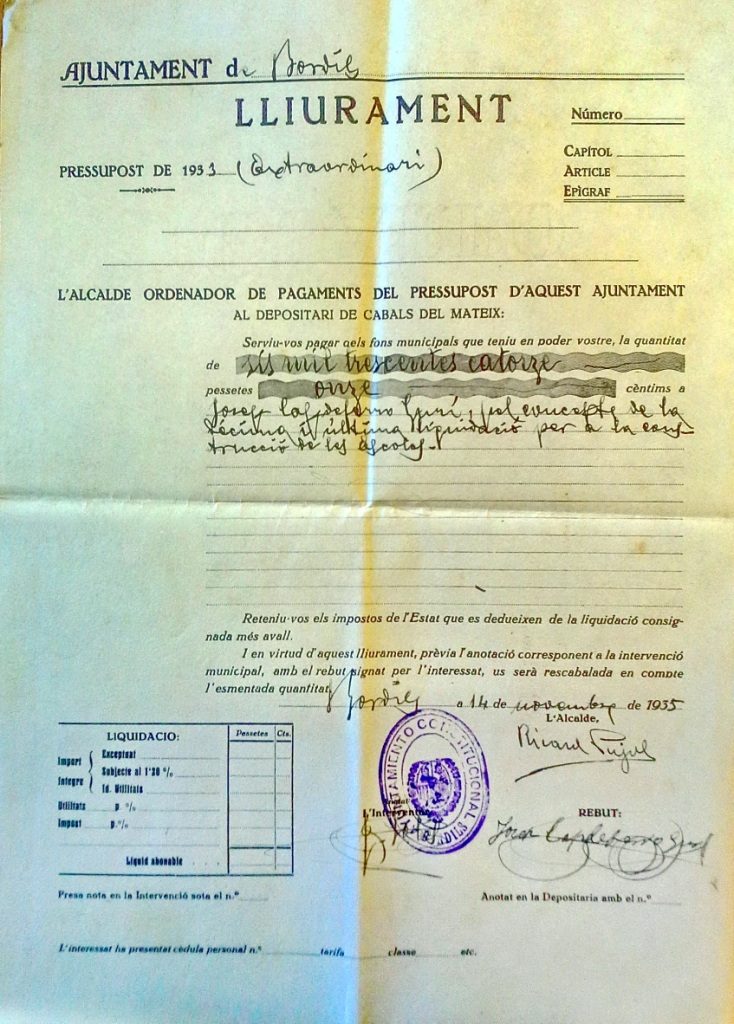 AJUNTAMENT de Bordils
LLIURAMENT
Número
PRESSUPOST DE 1933 (Extraordinari)
CAPÍTOL
ARTICLE
EPÍGRAF
L'ALCALDE ORDENADOR DE PAGAMENTS DEL PRESSUPOST D'AQUEST AJUNTAMENT
AL DEPOSITARI DE CABALS DEL MATEIX:
Serviu-vos pagar dels fons municipals que teniu en poder vostre, la quantitat
de sis mil trescentes catorze
pessetes onze cèntims a
Josep Capdeferro Gurí, pel concepte de la
dècima i última liquidació per a la cons-
trucció de les escoles.
Reteniu-vos els impostos de l'Estat que es dedueixen de la liquidació consig-
nada més avall.
I en virtud d'aquest lliurament, prèvia l'anotació corresponent a la intervenció
municipal, amb el rebut signat per l'interessat, us serà rescabalada en compte
l'esmentada quantitat.
Bordils a 14 de novembre de 1935
L'Alcalde,
Ricard Pujol
LIQUIDACIO: Pessetes Cts.
Import íntegre
Exceptuat
Subjecte al 1'20 %
Id. Utilitats
Utilitats p. %
Impost p. %
Líquid abonable
AYUNTAMIENTO CONSTITUCIONAL
BORDILS
L'Interventor
REBUT:
Josep Capdeferro Gurí
Presa nota en la Intervenció sota el n.º
Anotat en la Depositaria amb el n.º
L'interessat ha presentat cèdula personal n.º tarifa classe etc.